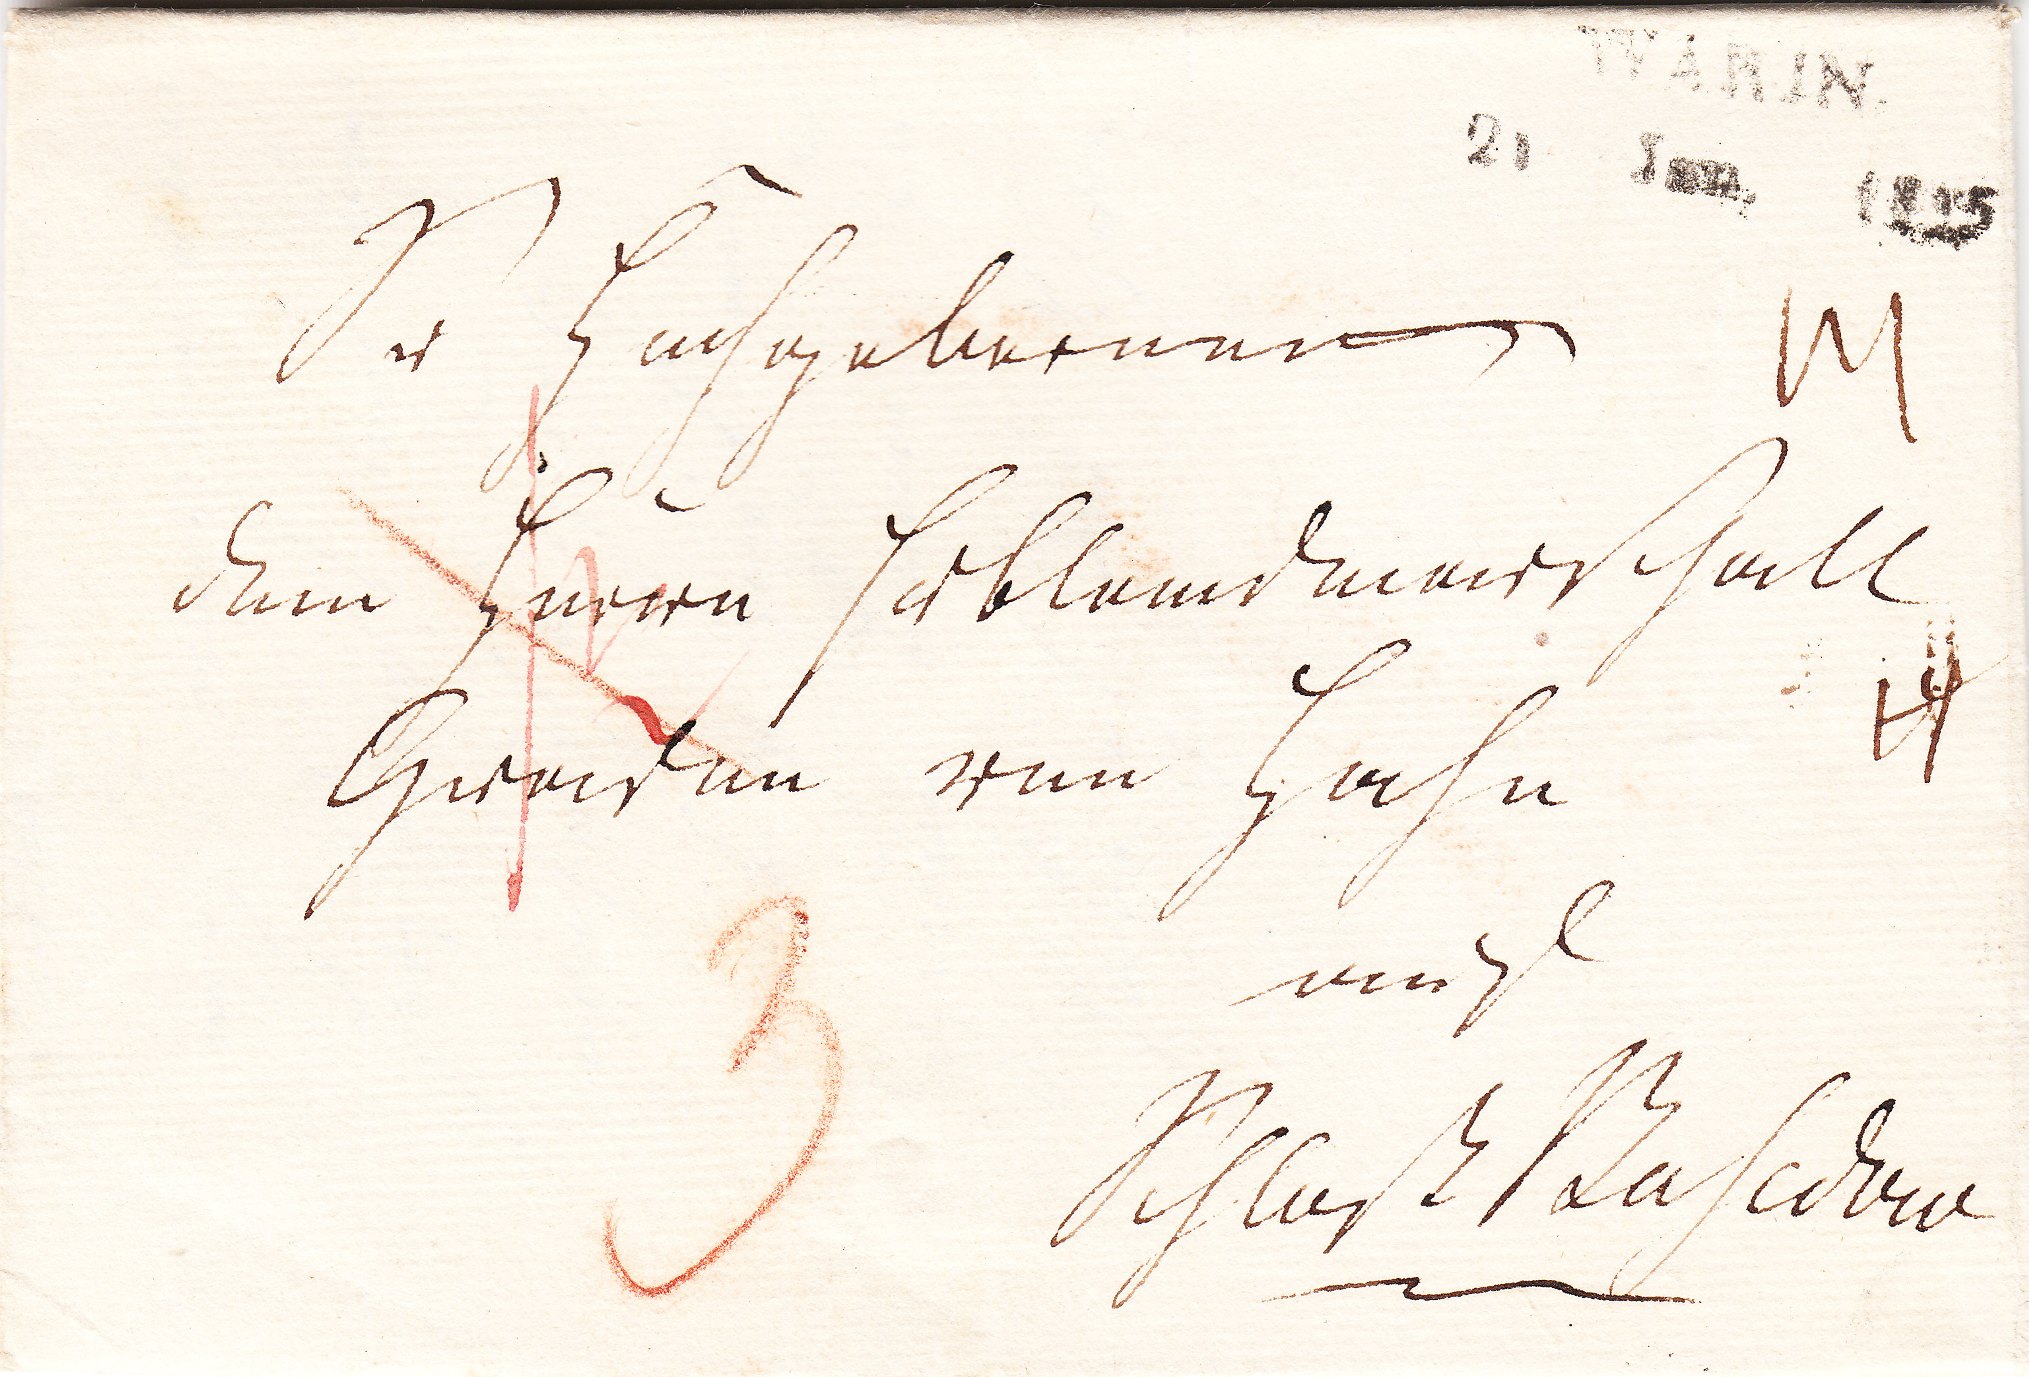 WARIN.
21 Jan. 18
Sr Hochgeboren
dem Herrn Erblandmarschall
Grafen von Hahn
auf
Schloß Basedow
3